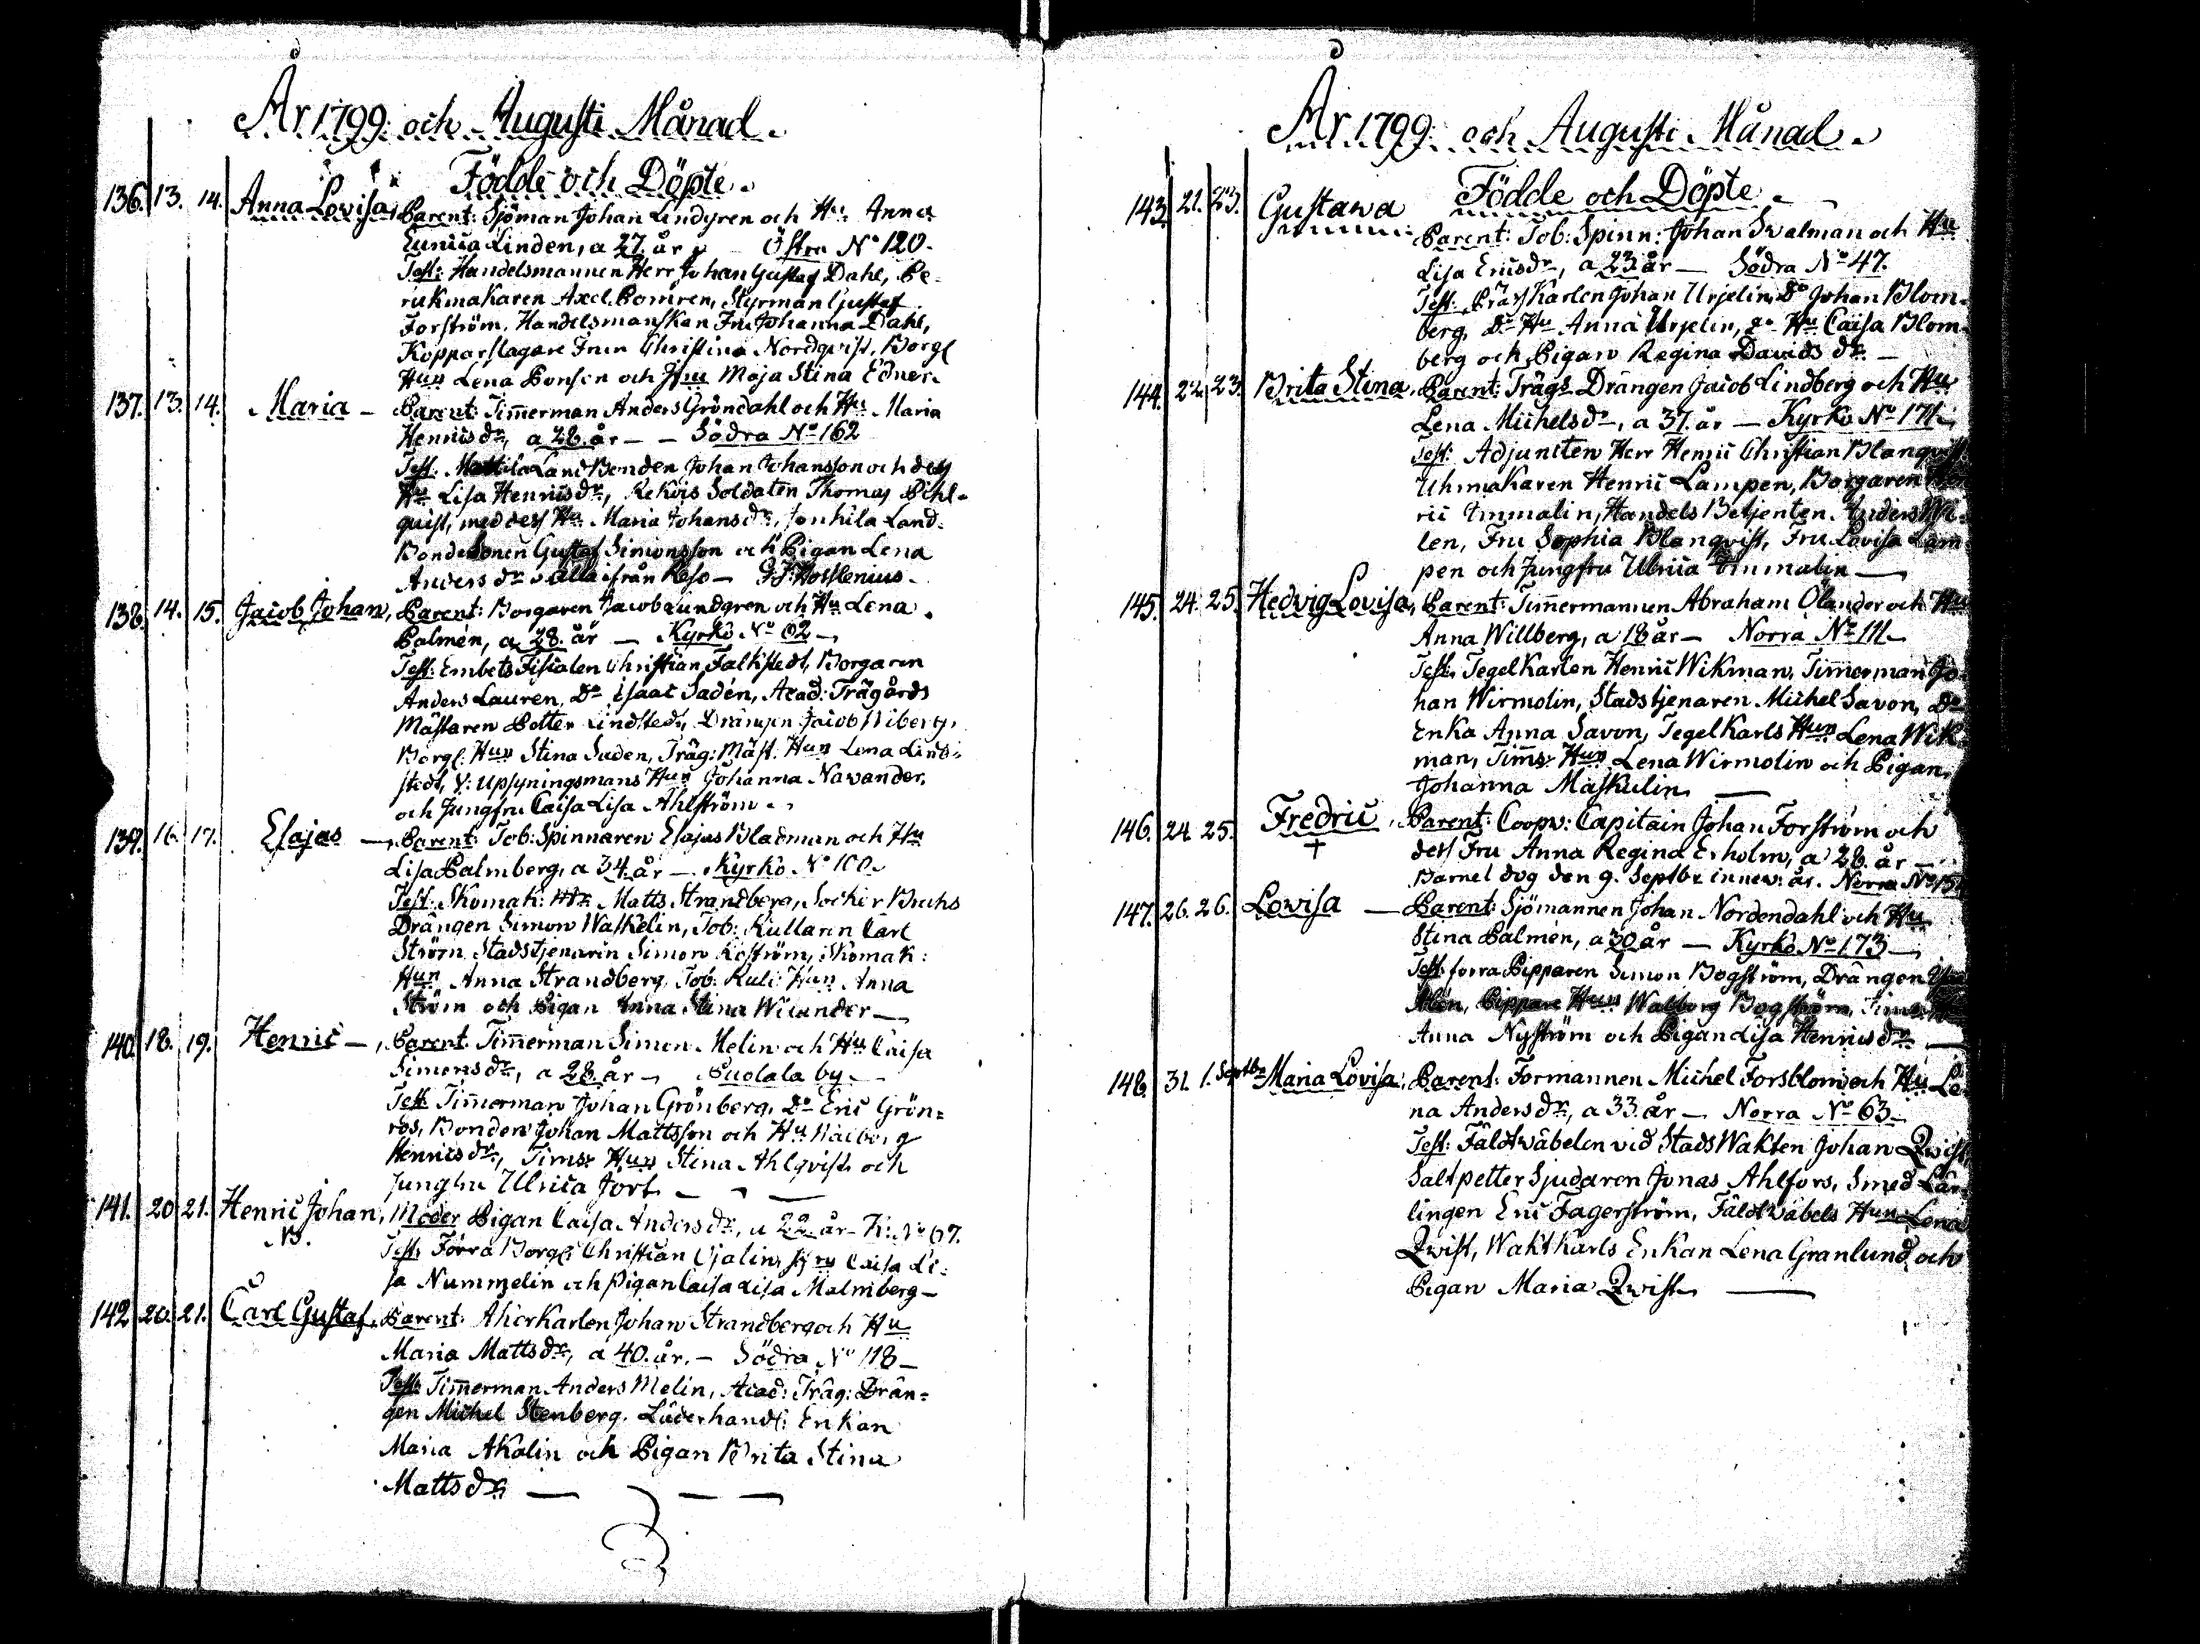 År 1799 och Augusti Månad.
Födde och Döpte.
136. 13. 14. Anna Lovisa, Parent: Sjöman Johan Lindgren och Hu Anna
Eunica Linden, a 27. år — Östra No 120.
Test: Handelsmannen Herr Johan Gustaf Dahl, Pe-
rukmakaren Axel Bomren, Styrman Gustaf
Forström, Handelsmanskan Fru Johanna Dahl,
Kopparslagare Frun Christina Nordqvist, Borgl
Hun Lena Bonsen och Jfru Maja Stina Edner.
137. 13. 14. Maria — Parent: Timmerman Anders Gröndahl och Hu Maria
Henricsdr, a 28. år — — Södra No 162
Test: Mattila Land Bonden Johan Johansson och dess
Hu Lisa Henricsdr, Rekvis Soldaten Thomas Pihl-
quist, med dess Hu Maria Johansdr, Land-
Bonde Sonen Gustaf Simonsson och Pigan Lena
Andersdr alla ifrån Reso —
138. 14. 15. Jacob Johan, Parent: Borgaren Jacob Lundgren och Hu Lena
Palmen, a 28. år — Kyrko No 62 —
Test: Embets Fiscalen Christian Falkstedt, Borgaren
Anders Lauren, Do Isaac Saden, Acad: Trägårds
Mästaren Petter Lindstedt, Drängen Jacob Wiberg,
Borgl: Hun Stina Saden, Träg: Mäst: Hun Lena Lind-
stedt, V: Upsyningsmans Hun Johanna Navander,
och Jungfru Caisa Lisa Ahlström.
139. 16. 17. Esajas —, Parent: Tob: Spinnaren Esajas Bladman och Hu
Lisa Palmberg, a 34. år — Kyrko No 100.
Test: Skomak: Matts Strandberg, Socker Bruks
Drängen Simon Waskelin, Tob: Rullaren Carl
Ström, Stadstjenaren Simon Roström, Skomak:
Hun Anna Strandberg, Tob: Rull: Hun Anna
Ström och Pigan Anna Stina Wicander —
140. 18. 19. Henric —, Parent: Timmerman Simon Melin och Hu Caisa
Simonsdr, a 28. år — Puolala by —
Test: Timmerman Johan Grönberg, Do Eric Grön-
ros, Bonden Johan Mattsson och Hu Walborg
Henricsdr, Timr: Hun Stina Ahlqvist och
Jungfru Ulrica Jort —
141. 20 21. Henric Johan, Moder Pigan Caisa Andersdr, a 22. år — K: No 67.
NB. Test: Förra Borg: Christian Ojalin, Jfru Caisa Li-
sa Nummelin och Pigan Caisa Lisa Malmberg —
142 20. 21. Carl Gustaf, Parent: Åkerkarlen Johan Strandberg och Hu
Maria Mattsdr, a 40. år. — Södra No 118 —
Test: Timmerman Anders Melin, Acad: Träg: Drän-
gen Michel Stenberg, Läderhandl: Enkan
Maria Akolin och Pigan Brita Stina
Mattsdr —
År 1799 och Augusti Månad.
Födde och Döpte.
143. 21. 23. Gustava Parent: Tob: Spinn: Johan Svalman och Hu
Lisa Ericsdr, a 23. år — Södra No 47.
Test: Johan Urjelin, Do Johan Blom-
berg, Do Hu Anna Urjelin, Do Hu Caisa Blom-
berg och Pigan Regina Davidsdr —
144. 22. 23. Brita Stina, Parent: Trägs Drängen Jacob Lindberg och Hu
Lena Michelsdr, a 37. år — Kyrko No 171.
Test: Adjuncten Herr Henric Christian Blanqvist
Uhrmakaren Henric Lampen, Borgaren Hen-
ric Immalin, Handels Betjenten Anders Wi-
len, Fru Sophia Blanqvist, Fru Lovisa Lam-
pen och Jungfru Ulrica Immalin —
145. 24. 25. Hedvig Lovisa, Parent: Timmermannen Abraham Ölander och Hu
Anna Willberg, a 18 år — Norra No 111 —
Test: Tegel Karlen Henric Wikman, Timmerman Jo-
han Wirmolin, Stadstjenaren Michel Savon, Do
Enka Anna Savon, Tegel Karls Hun Lena Wik-
man, Timr: Hun Lena Wirmolin och Pigan
Johanna Maskulin —
146. 24. 25. Fredric, Parent: Coopv: Capitain Johan Forström och
† dess Fru Anna Regina Erholm, a 28. år —
Barnet dog den 9. Septbr innev: år. Norra
147. 26. 26. Lovisa — Parent: Sjömannen Johan Nordendahl och Hu
Stina Palmen, a 30 år — Kyrko No 173 —
Test: förra Pipparen Simon Bogström, Drängen
Pippare Hun Walborg Bogström,
Anna Nyström och Pigan Lisa Henricsdr —
148. 31. 1. Septbr Maria Lovisa, Parent: Formannen Michel Forsblom och Hu Le-
na Andersdr, a 33. år — Norra No 63 —
Test: Fältwäbelen vid Stads Wakten Johan Qwist,
Saltpetter Sjudaren Jonas Ahlfors, Smed Lär-
lingen Eric Fagerström, Fältwäbels Hun Lena
Qwist, Waktkarls Enkan Lena Granlund och
Pigan Maria Qwist —